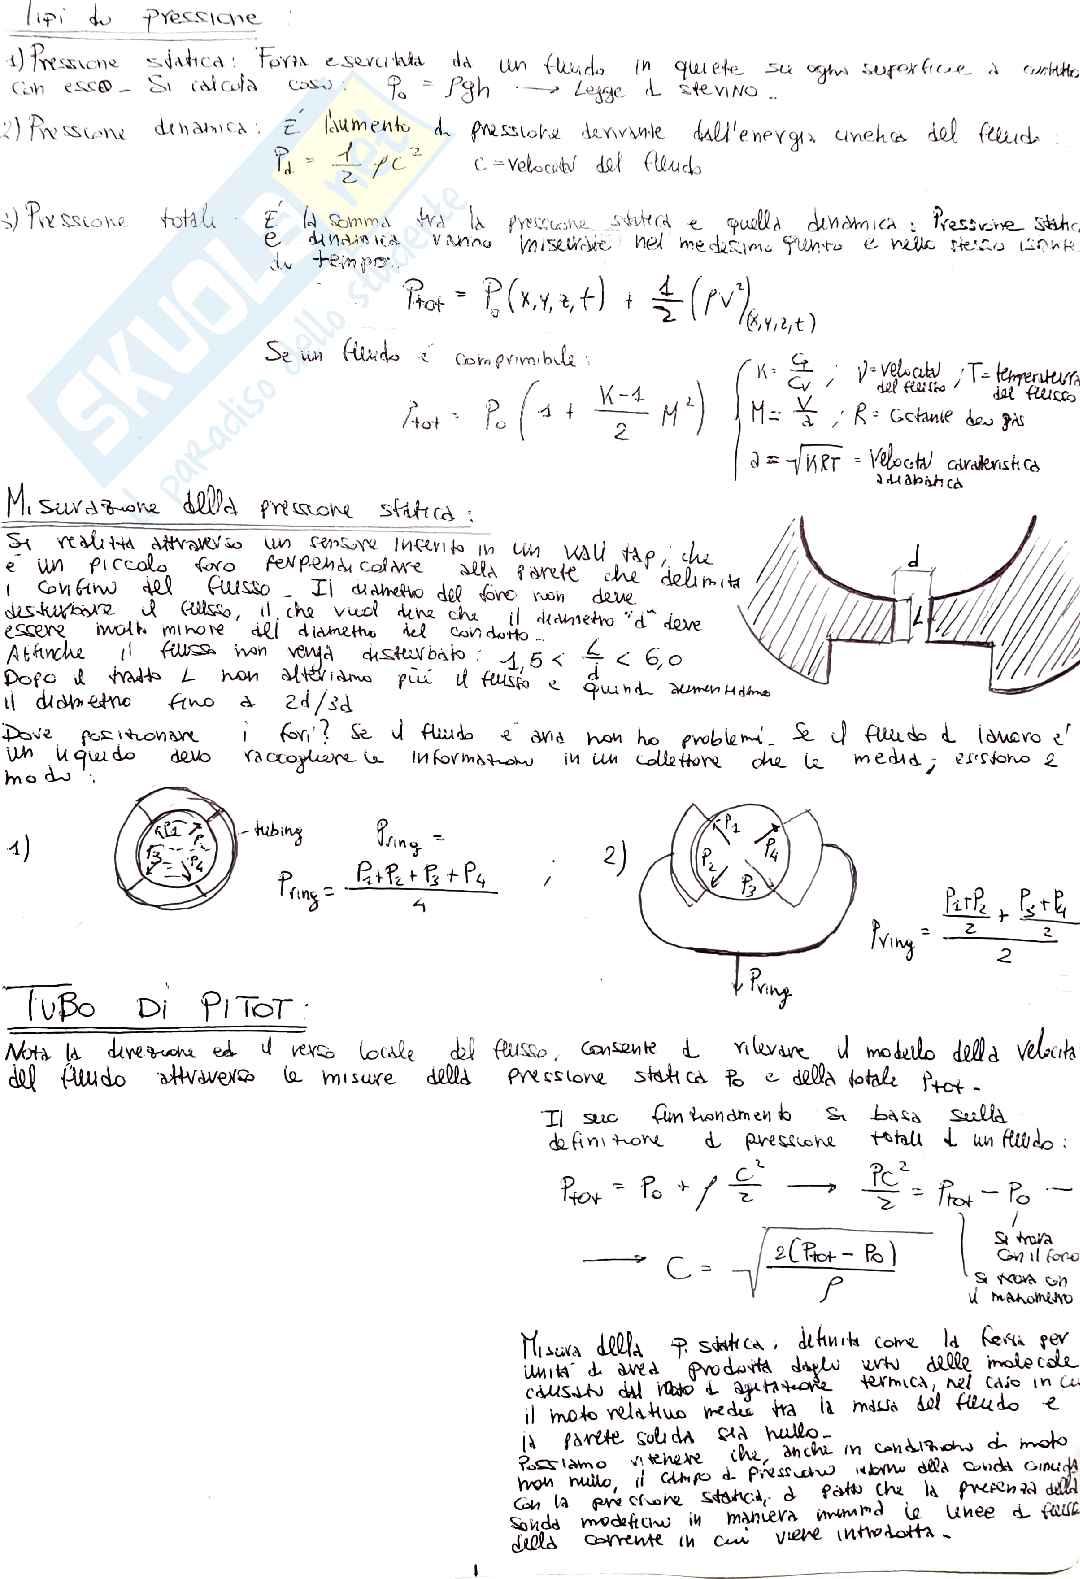 Tipi di pressione:
1) Pressione statica: Forza esercitata da un fluido in quiete su ogni superficie a contatto
con esso. Si calcola così: P₀ = ρgh → Legge di Stevino..
2) Pressione dinamica: È l'aumento di pressione derivante dall'energia cinetica del fluido:
P_d = 1/2 ρc²   c = velocità del fluido
3) Pressione totale: È la somma tra la pressione statica e quella dinamica: Pressione statica
e dinamica vanno misurate nel medesimo punto e nello stesso istante
di tempo..
P_tot = P₀(x,y,z,t) + 1/2 (ρv²)(x,y,z,t)
Se un fluido è comprimibile:
P_tot = P₀ (1 + (K-1)/2 M²)
K = Cp/Cv ; V = velocità del flusso ; T = temperatura del flusso
M = V/a ; R = Costante dei gas
a = √KRT = Velocità caratteristica adiabatica
Misurazione della pressione statica:
Si realizza attraverso un sensore inserito in un wall tap, che
è un piccolo foro perpendicolare alla parete che delimita
i confini del flusso. Il diametro del foro non deve
disturbare il flusso, il che vuol dire che il diametro "d" deve
essere molto minore del diametro del condotto..
Affinché il flusso non venga disturbato: 1,5 < L/d < 6,0
Dopo il tratto L non alteriamo più il flusso e quindi aumentiamo
il diametro fino a 2d/3d
d
L
Dove posizionare i fori? Se il fluido è aria non ho problemi. Se il fluido di lavoro è
un liquido devo raccogliere le informazioni in un collettore che le media; esistono 2
modi:
1)
P1 P2 P3 P4
tubing
P_ring =
P_ring = (P1+P2+P3+P4)/4 ;
2)
P1 P4 P2 P3
P_ring
P_ring = ((P1+P2)/2 + (P3+P4)/2)/2
TUBO DI PITOT:
Nota la direzione ed il verso locale del flusso, consente di rilevare il modello della velocità
del fluido attraverso le misure della pressione statica P₀ e della totale P_tot.
Il suo funzionamento si basa sulla
definizione di pressione totale di un fluido:
P_tot = P₀ + ρ c²/2 → ρc²/2 = P_tot - P₀ ...
→ C = √(2(P_tot - P₀)/ρ)
si trova
con il foro
si trova con
il manometro
Misura della p. statica: definita come la forza per
unità di area prodotta dagli urti delle molecole
causato dal moto di agitazione termica, nel caso in cui
il moto relativo medio tra la massa del fluido e
la parete solida sia nullo.
Possiamo ritenere che, anche in condizioni di moto
non nullo, il campo di pressioni intorno alla sonda coincida
con la pressione statica, a patto che la presenza della
sonda modifichi in maniera minima le linee di flusso
della corrente in cui viene introdotta.
SKUOLA.net
il paradiso dello studente